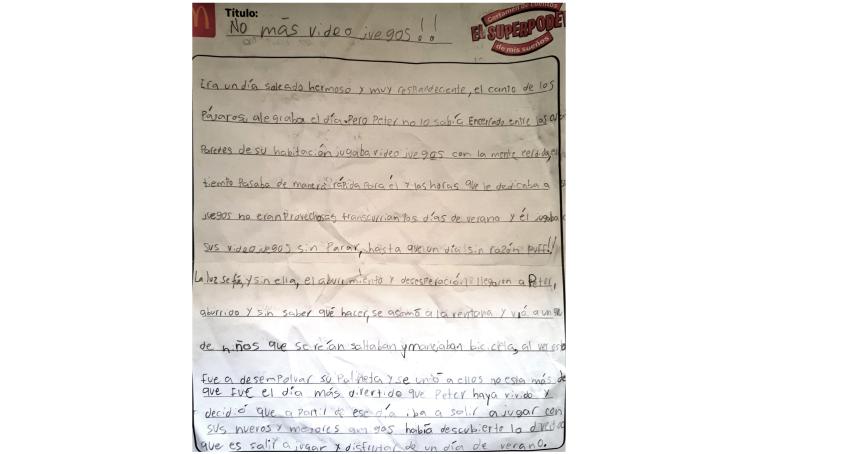 Título:
No más video juegos!!
Certamen de Cuentos
EL SUPERPODER
de mis sueños
Era un día soleado hermoso y muy resplandeciente, el canto de los
Pájaros, alegraba el día. Pero Peter no lo sabía Encerrado entre las
Paredes de su habitación jugaba video juegos con la mente perdida, el
tiempo Pasaba de manera rápida Para él y las horas que le dedicaba a
juegos no eran Provechosas, transcurrían los días de verano y él jugaba
sus videojuegos sin Parar, hasta que un día sin razón puff!!
La luz se fue, y sin ella, el aburrimiento y desesperación llegaron a Peter,
aburrido y sin saber qué hacer, se asomó a la ventana y vió a un
de niños que se reían saltaban y manejaban bicicleta, al ver esto
fue a desempolvar su Patineta y se unió a ellos no esta más de
que fue el día más divertido que Peter haya vivido y
decidió que a Partir de ese día iba a salir a jugar con
sus nuevos y mejores amigos había descubierto lo
que es salir a jugar y disfrutar de un día de verano.